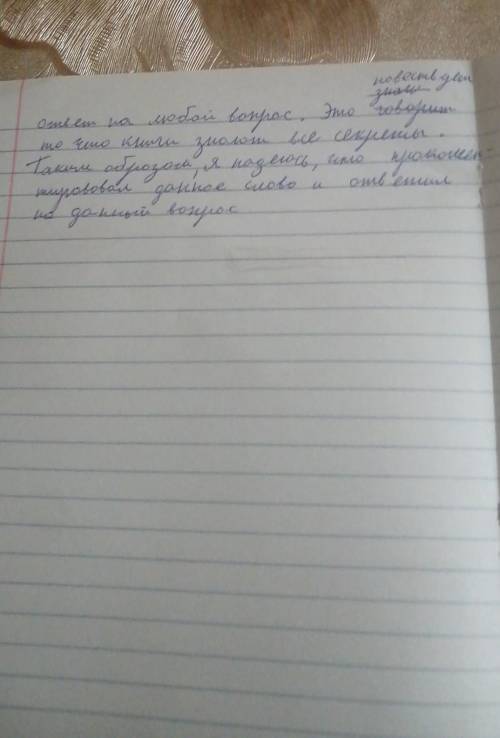 повествует
знаки
ответ на любой вопрос. Это говорит
то что книги знают все секреты.
Таким образом, я надеюсь, что прокомен-
тировал данное слово и ответил
на данный вопрос